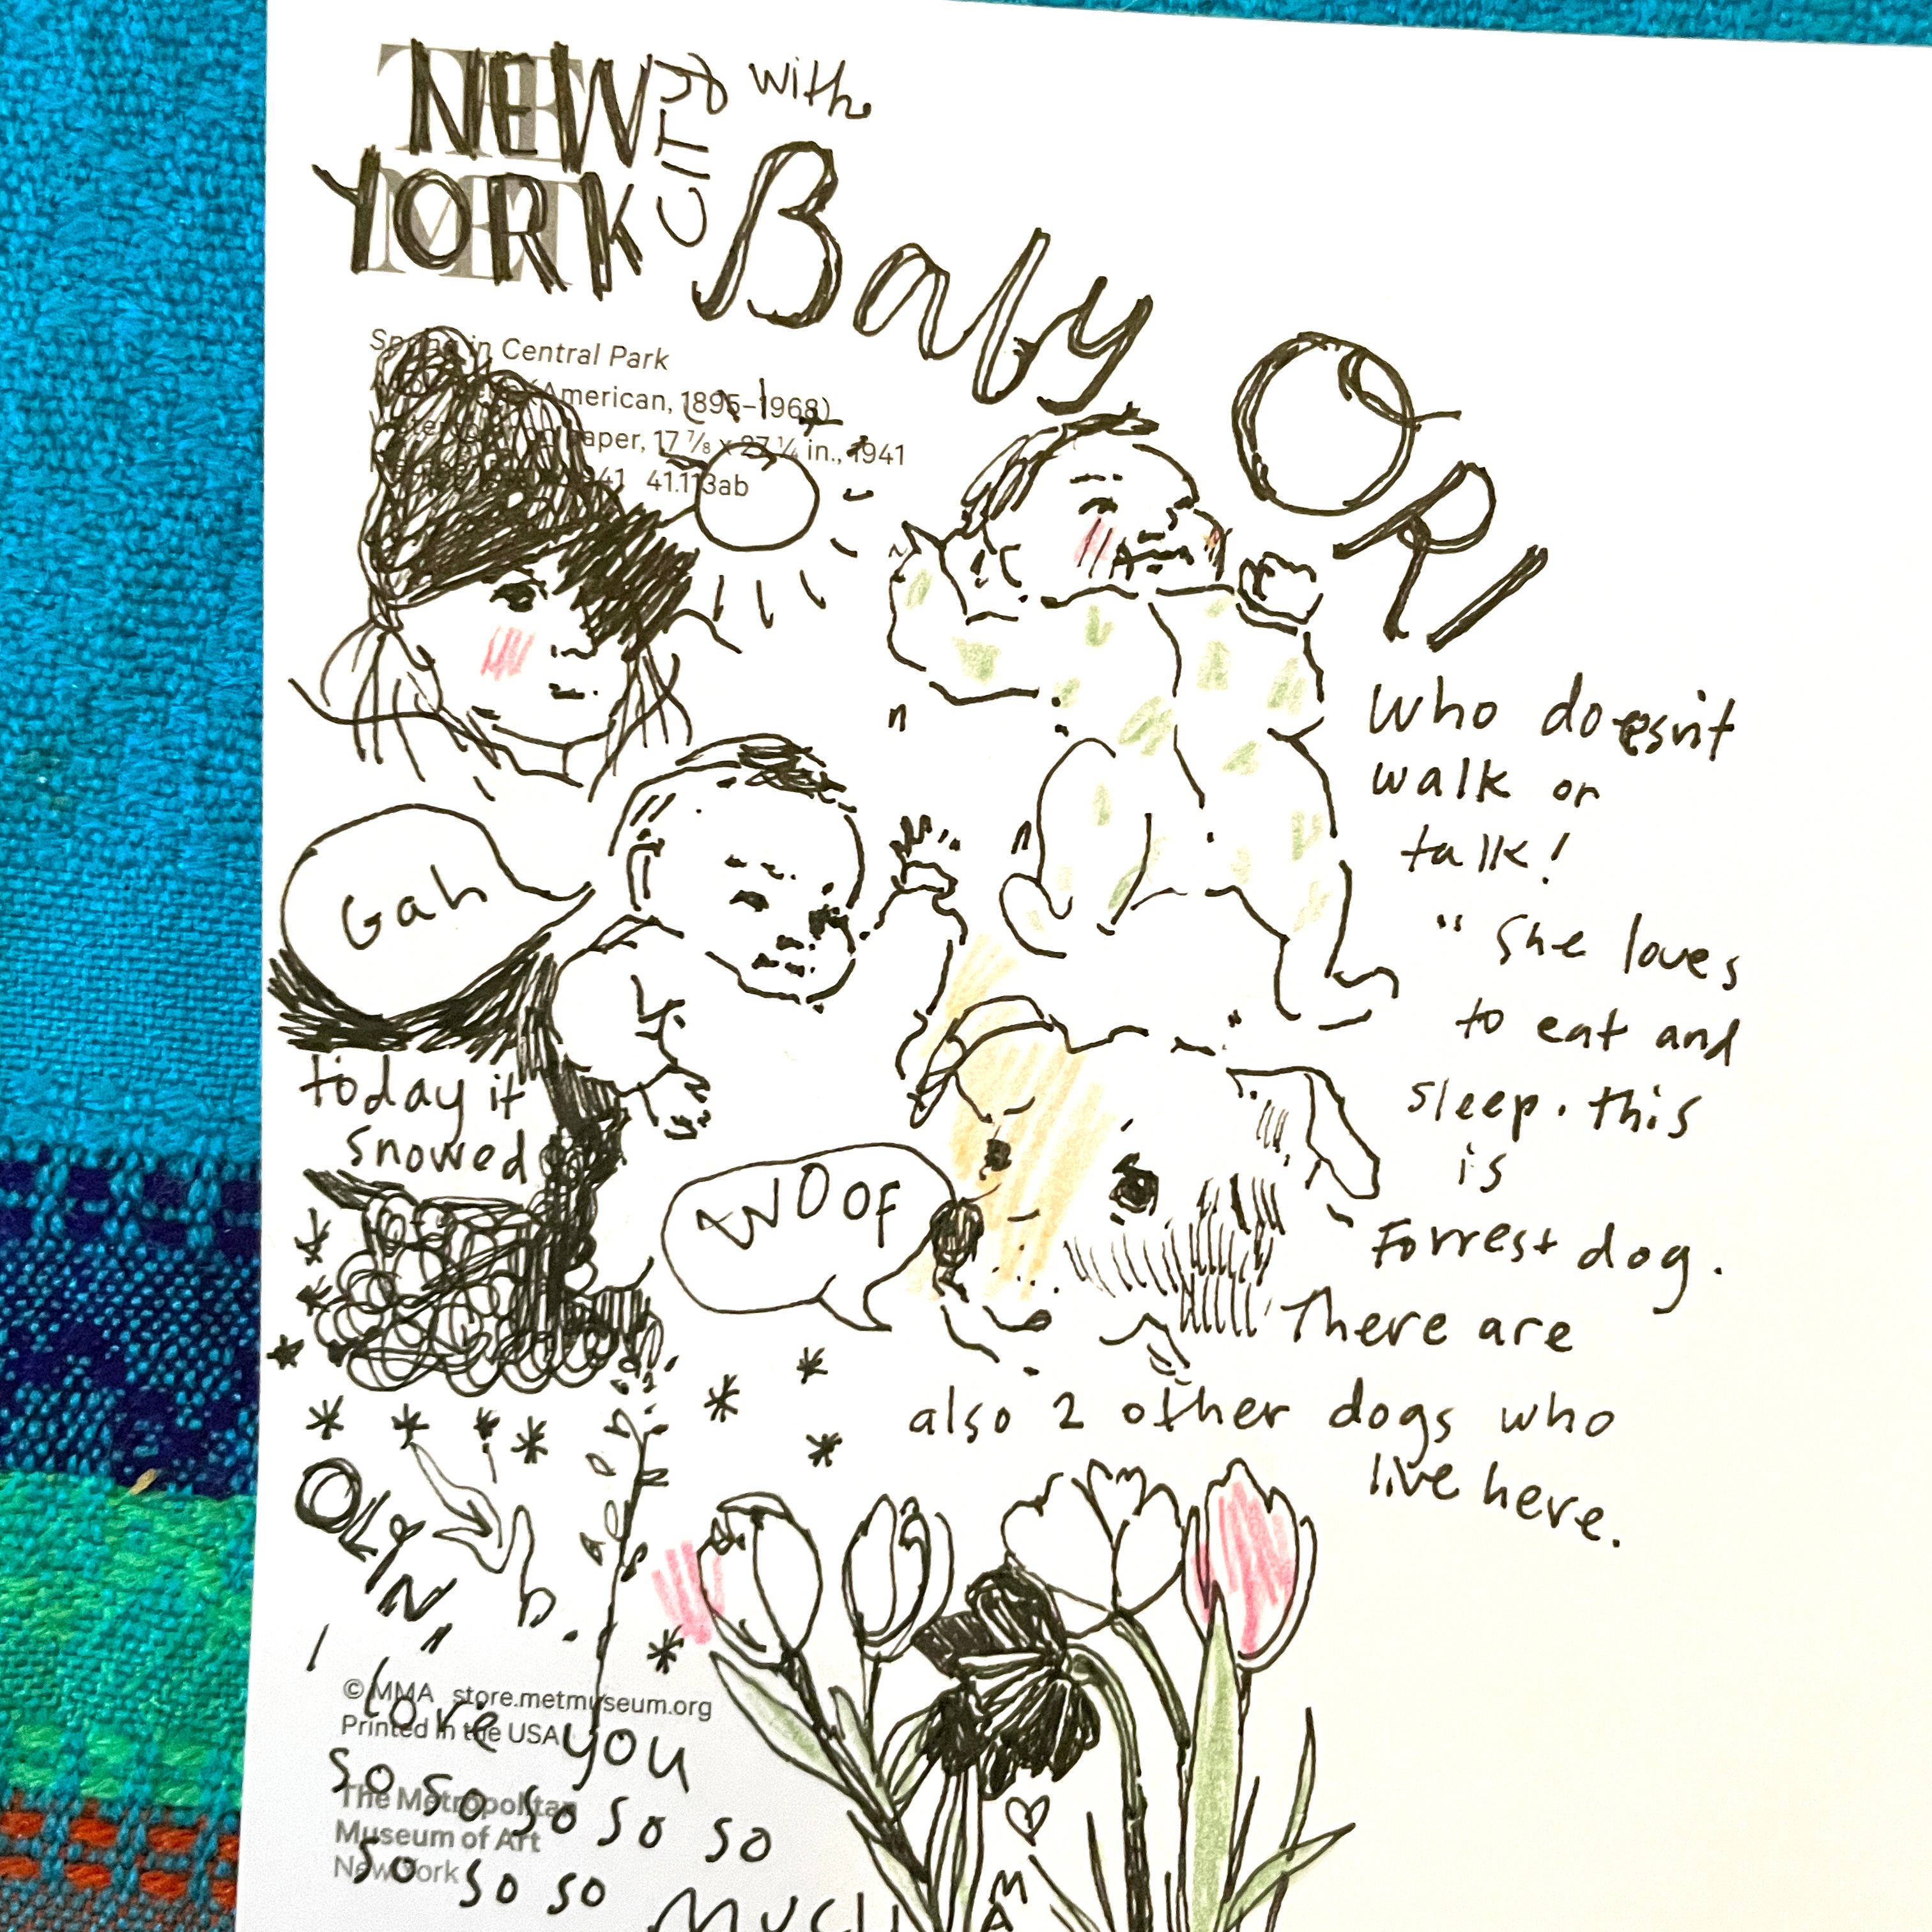 NEW
YORK
CITY
with
Baby
ORI
Spring in Central Park
(American, 1895–1968)
paper, 17 ⅞ x 27 ¼ in., 1941
41.113ab
who doesn't
walk or
talk!
Gah
" She loves
to eat and
sleep. this
is
Forrest dog.
today it
snowed
WOOF
There are
also 2 other dogs who
live here.
OLIN,
I love you
so so so so so
so so so MUCH
© MMA store.metmuseum.org
Printed in the USA
The Metropolitan
Museum of Art
New York
MA